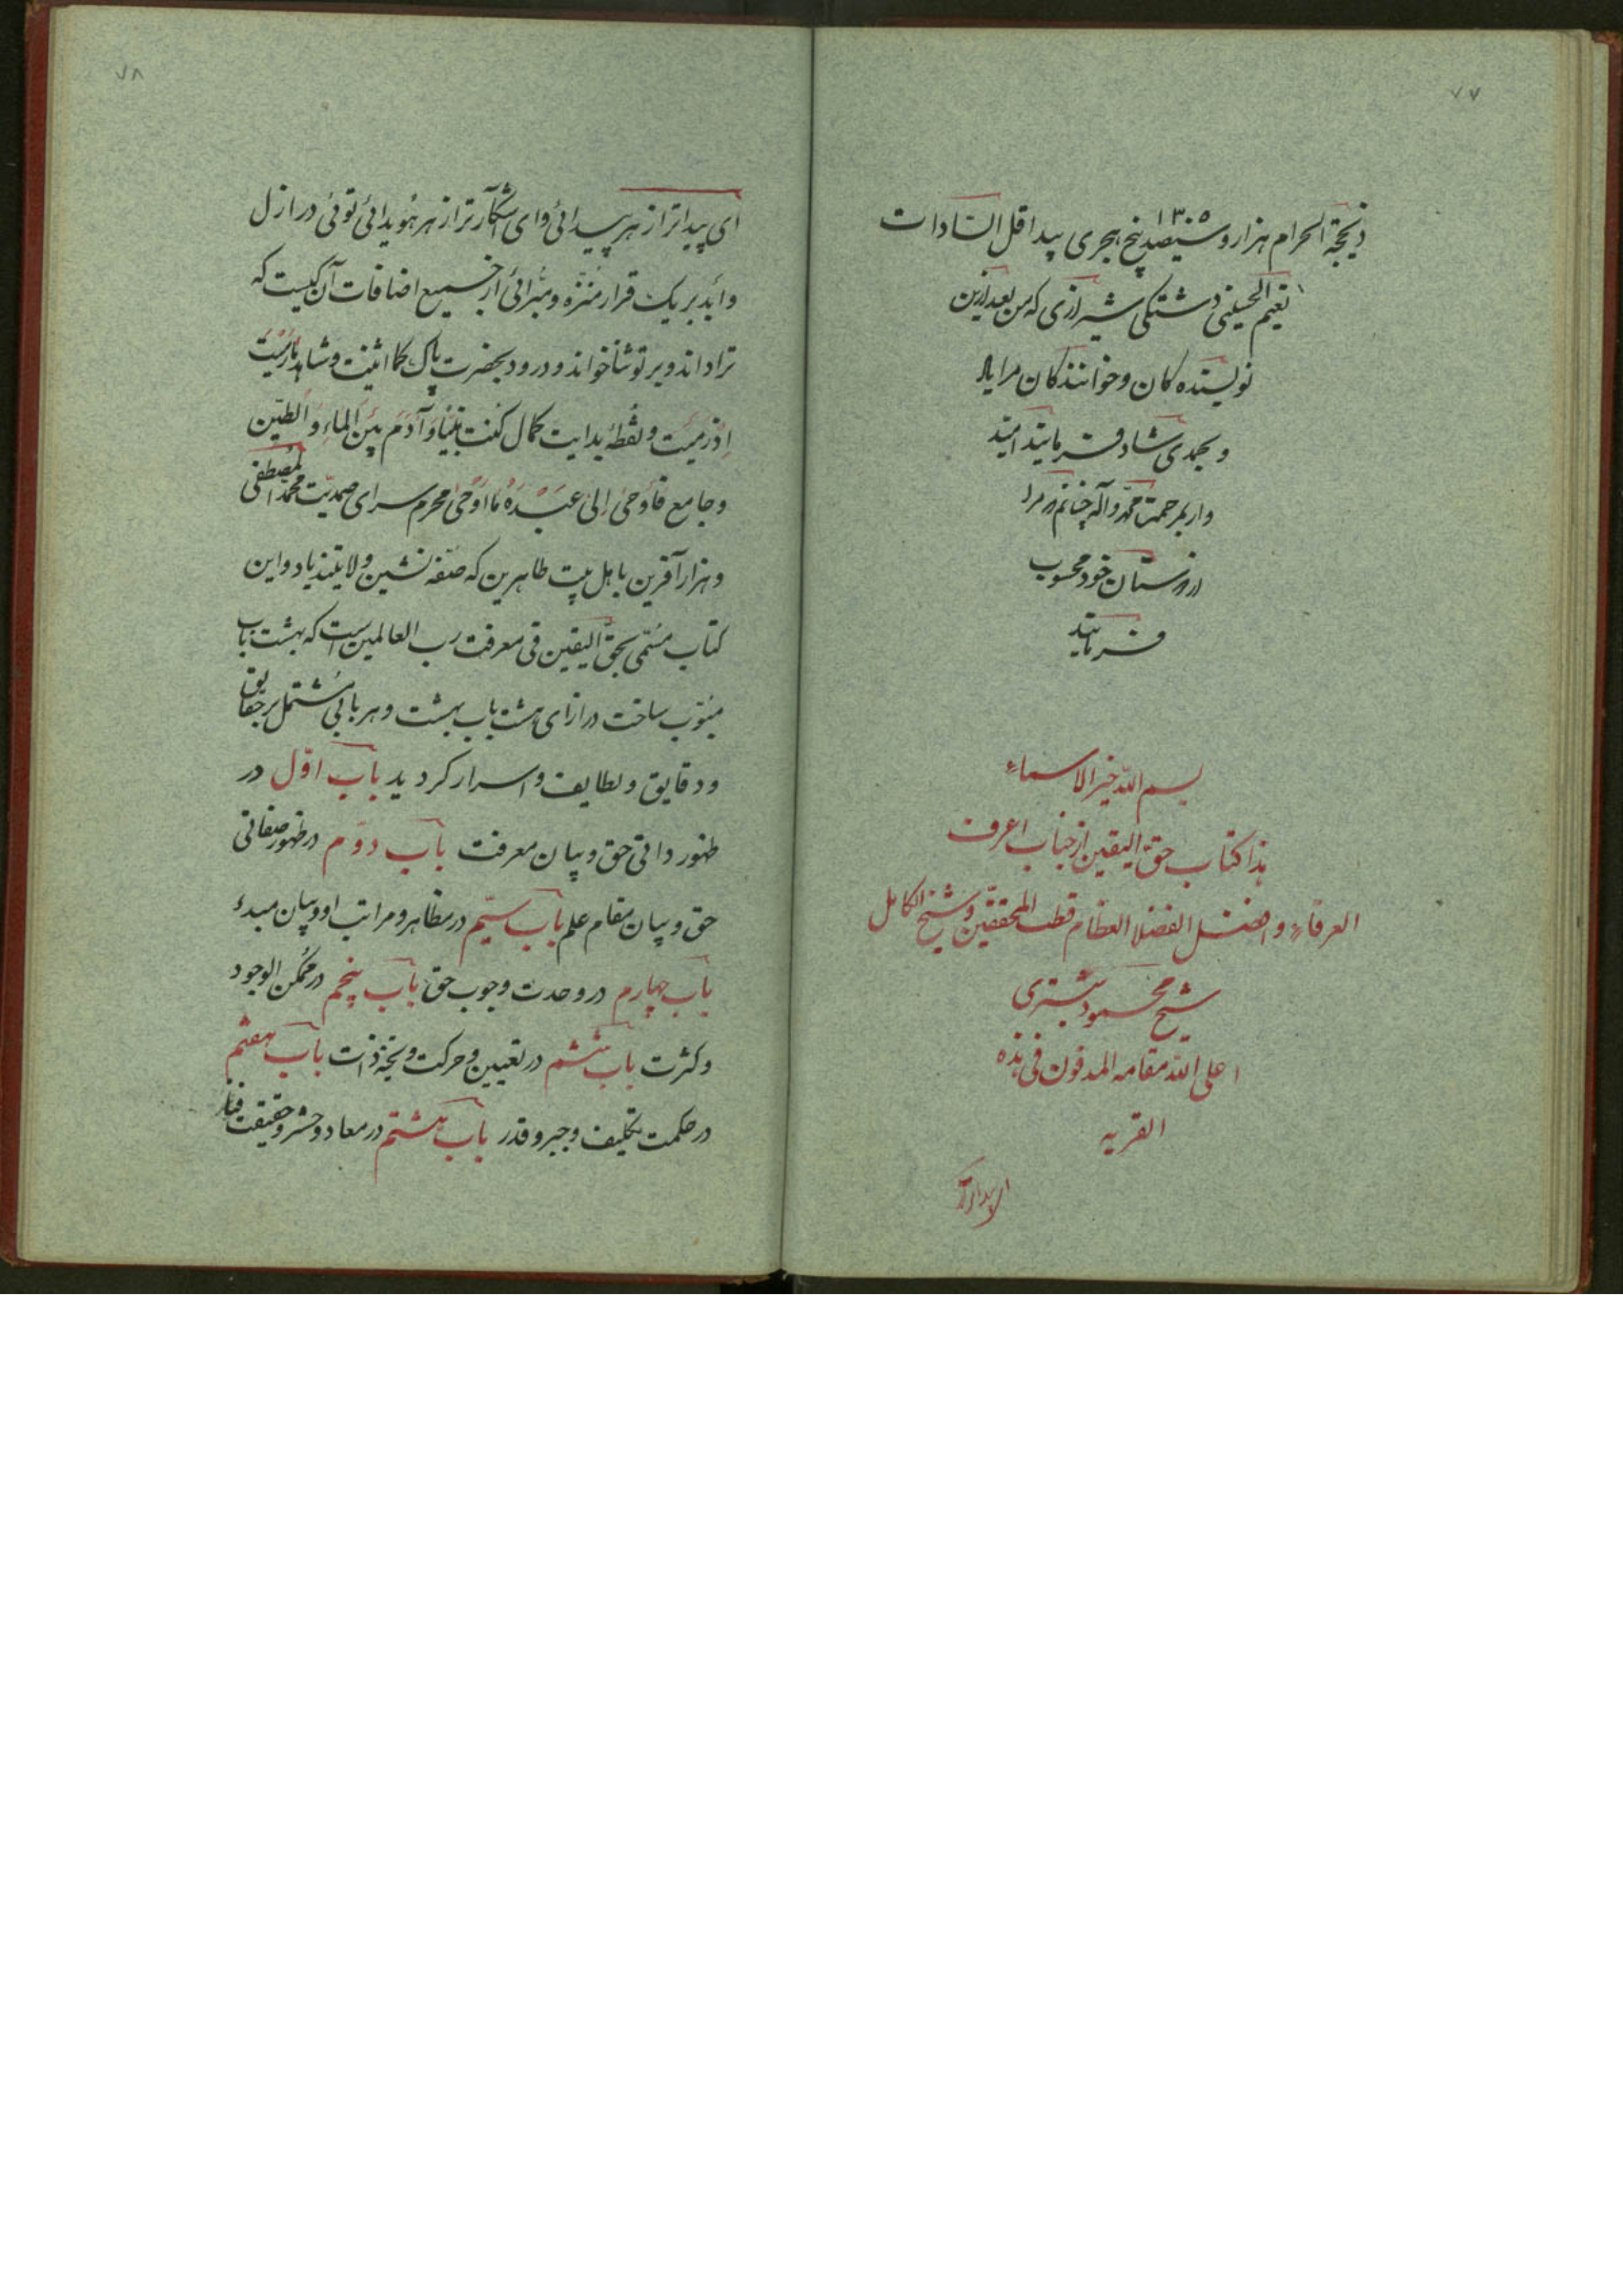 ۷۷
ذیحجة الحرام هزار و سیصد پنج ۱۳۰۵ هجری بید اقل السادات
نعیم الحسینی دشتکی شیرازی که من بعد ازین
نویسنده کان و خوانندکان مرا
و بحمدی شاد فرمایند امید
وار بمرحمت محمد و آله چنانم که مرا
از دوستان خود محسوب
فرمایند
بسم الله خیر الاسماء
هذا کتاب حق الیقین از جناب اعرف
العرفاء و افضل الفضلا العظام قطب المحققین و شیخ الکامل
شیخ محمود شبستری
اعلی الله مقامه المدفون فی هذه
القریه
۷۸
ای پیداتر از هر پیدائی و ای آشکارتر از هر هویدائی توئی در ازل
و ابد بر یک قرار منزه و مبرائی از جمیع اضافات آن کیست که
ترا داند و بر تو ثنا خواند و درود بحضرت پاک کما اثنیت و شاهد ما رمیت
اذ رمیت و نقطه بدایت کمال کنت نبیا و آدم بین الماء و الطین
و جامع فاوحی الی عبده ما اوحی محرم سرای صمدیت محمد المصطفی
و هزار آفرین باهل بیت طاهرین که صفه نشین ولایتند باد و این
کتاب مسمی بحق الیقین فی معرفت رب العالمین است که بهشت باب
مبوب ساخت در ازای هشت باب بهشت و هر بابی مشتمل بر حقایق
و دقایق و لطایف و اسرار کردید باب اول در
ظهور ذاتی حق و بیان معرفت باب دوم در ظهور صفاتی
حق و بیان مقام علم باب سیم در مظاهر و مراتب او و بیان مبدء
باب چهارم در وحدت وجوب حق باب پنجم در ممکن الوجود
و کثرت باب ششم در تعیین و حرکت و تجدد ذات باب هفتم
در حکمت تکلیف و جبر و قدر باب هشتم در معاد و حشر و حقیقت فنا